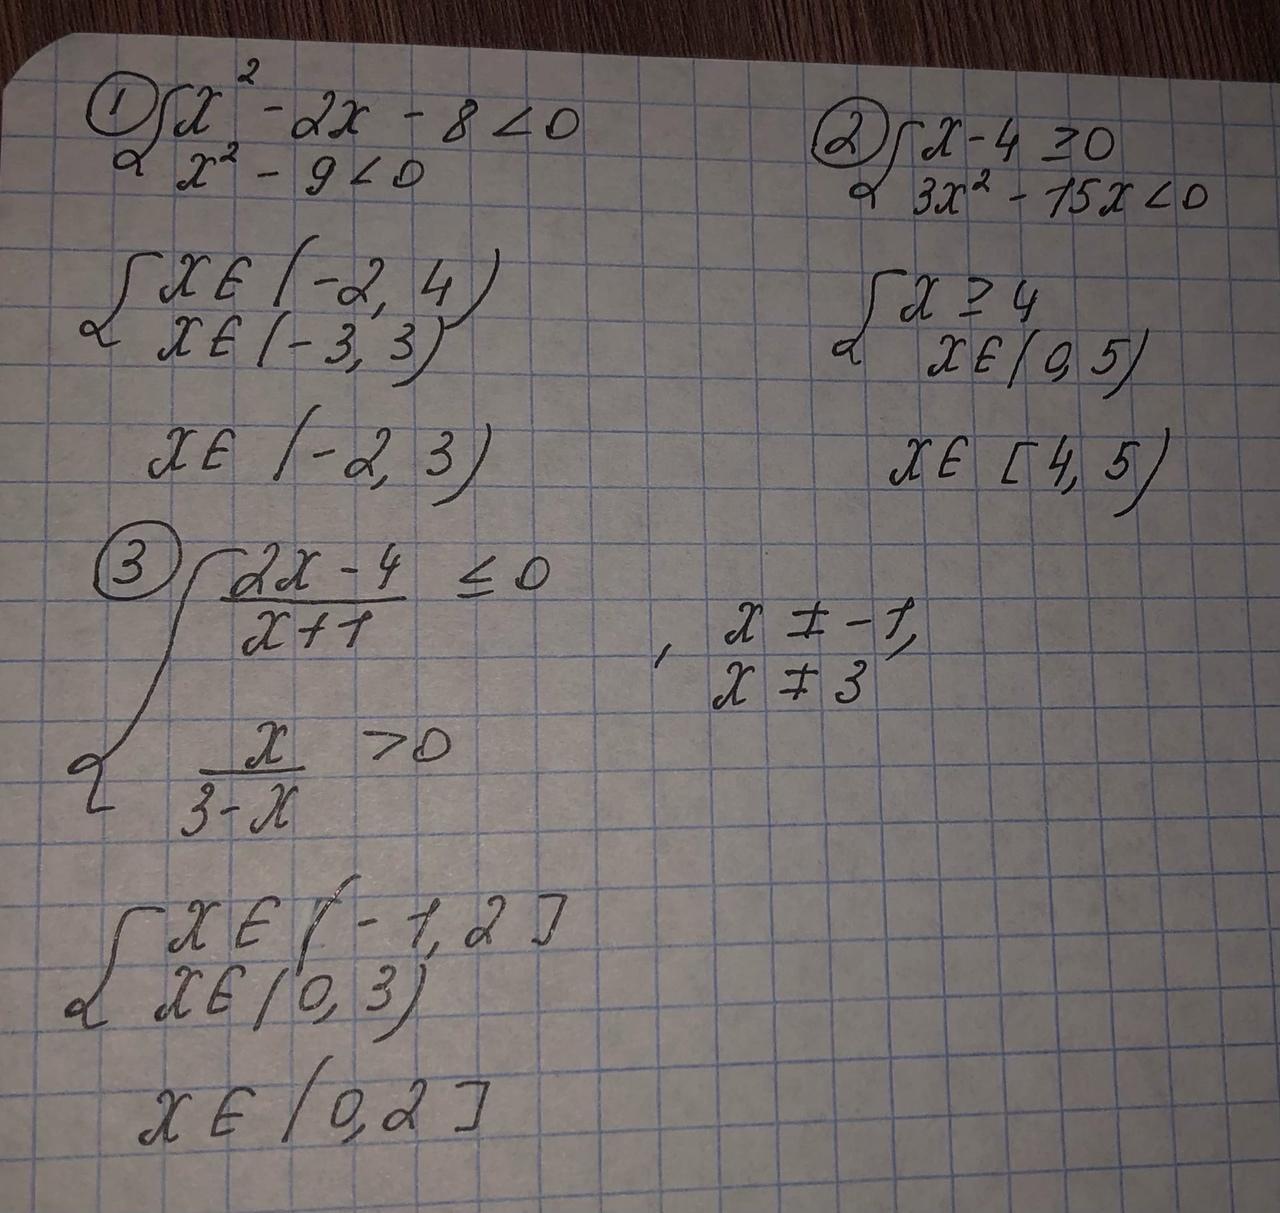 ① { x² - 2x - 8 < 0
x² - 9 < 0
{ x ∈ (-2, 4)
x ∈ (-3, 3)
x ∈ (-2, 3)
② { x - 4 ≥ 0
3x² - 15x < 0
{ x ≥ 4
x ∈ (0, 5)
x ∈ [4, 5)
③ { (2x - 4)/(x + 1) ≤ 0
x/(3 - x) > 0
, x ≠ -1,
x ≠ 3
{ x ∈ (-1, 2]
x ∈ (0, 3)
x ∈ (0, 2]